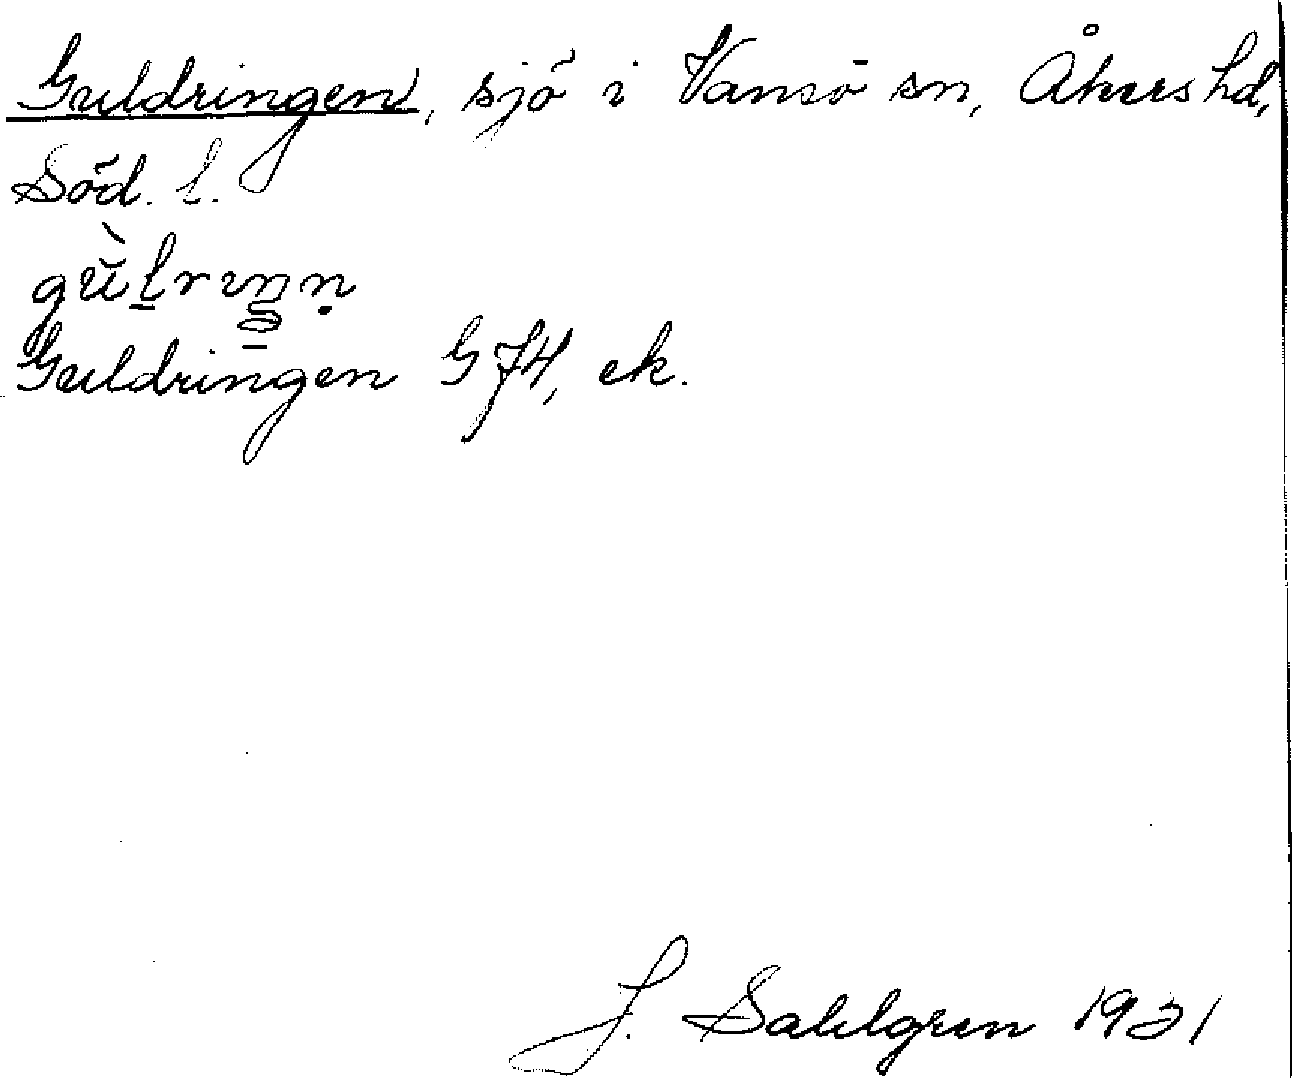 Guldringen, sjö i Vansö sn, Åkers hd,
Söd. l.
Guldringen G 74, ek.
J. Sahlgren 1931